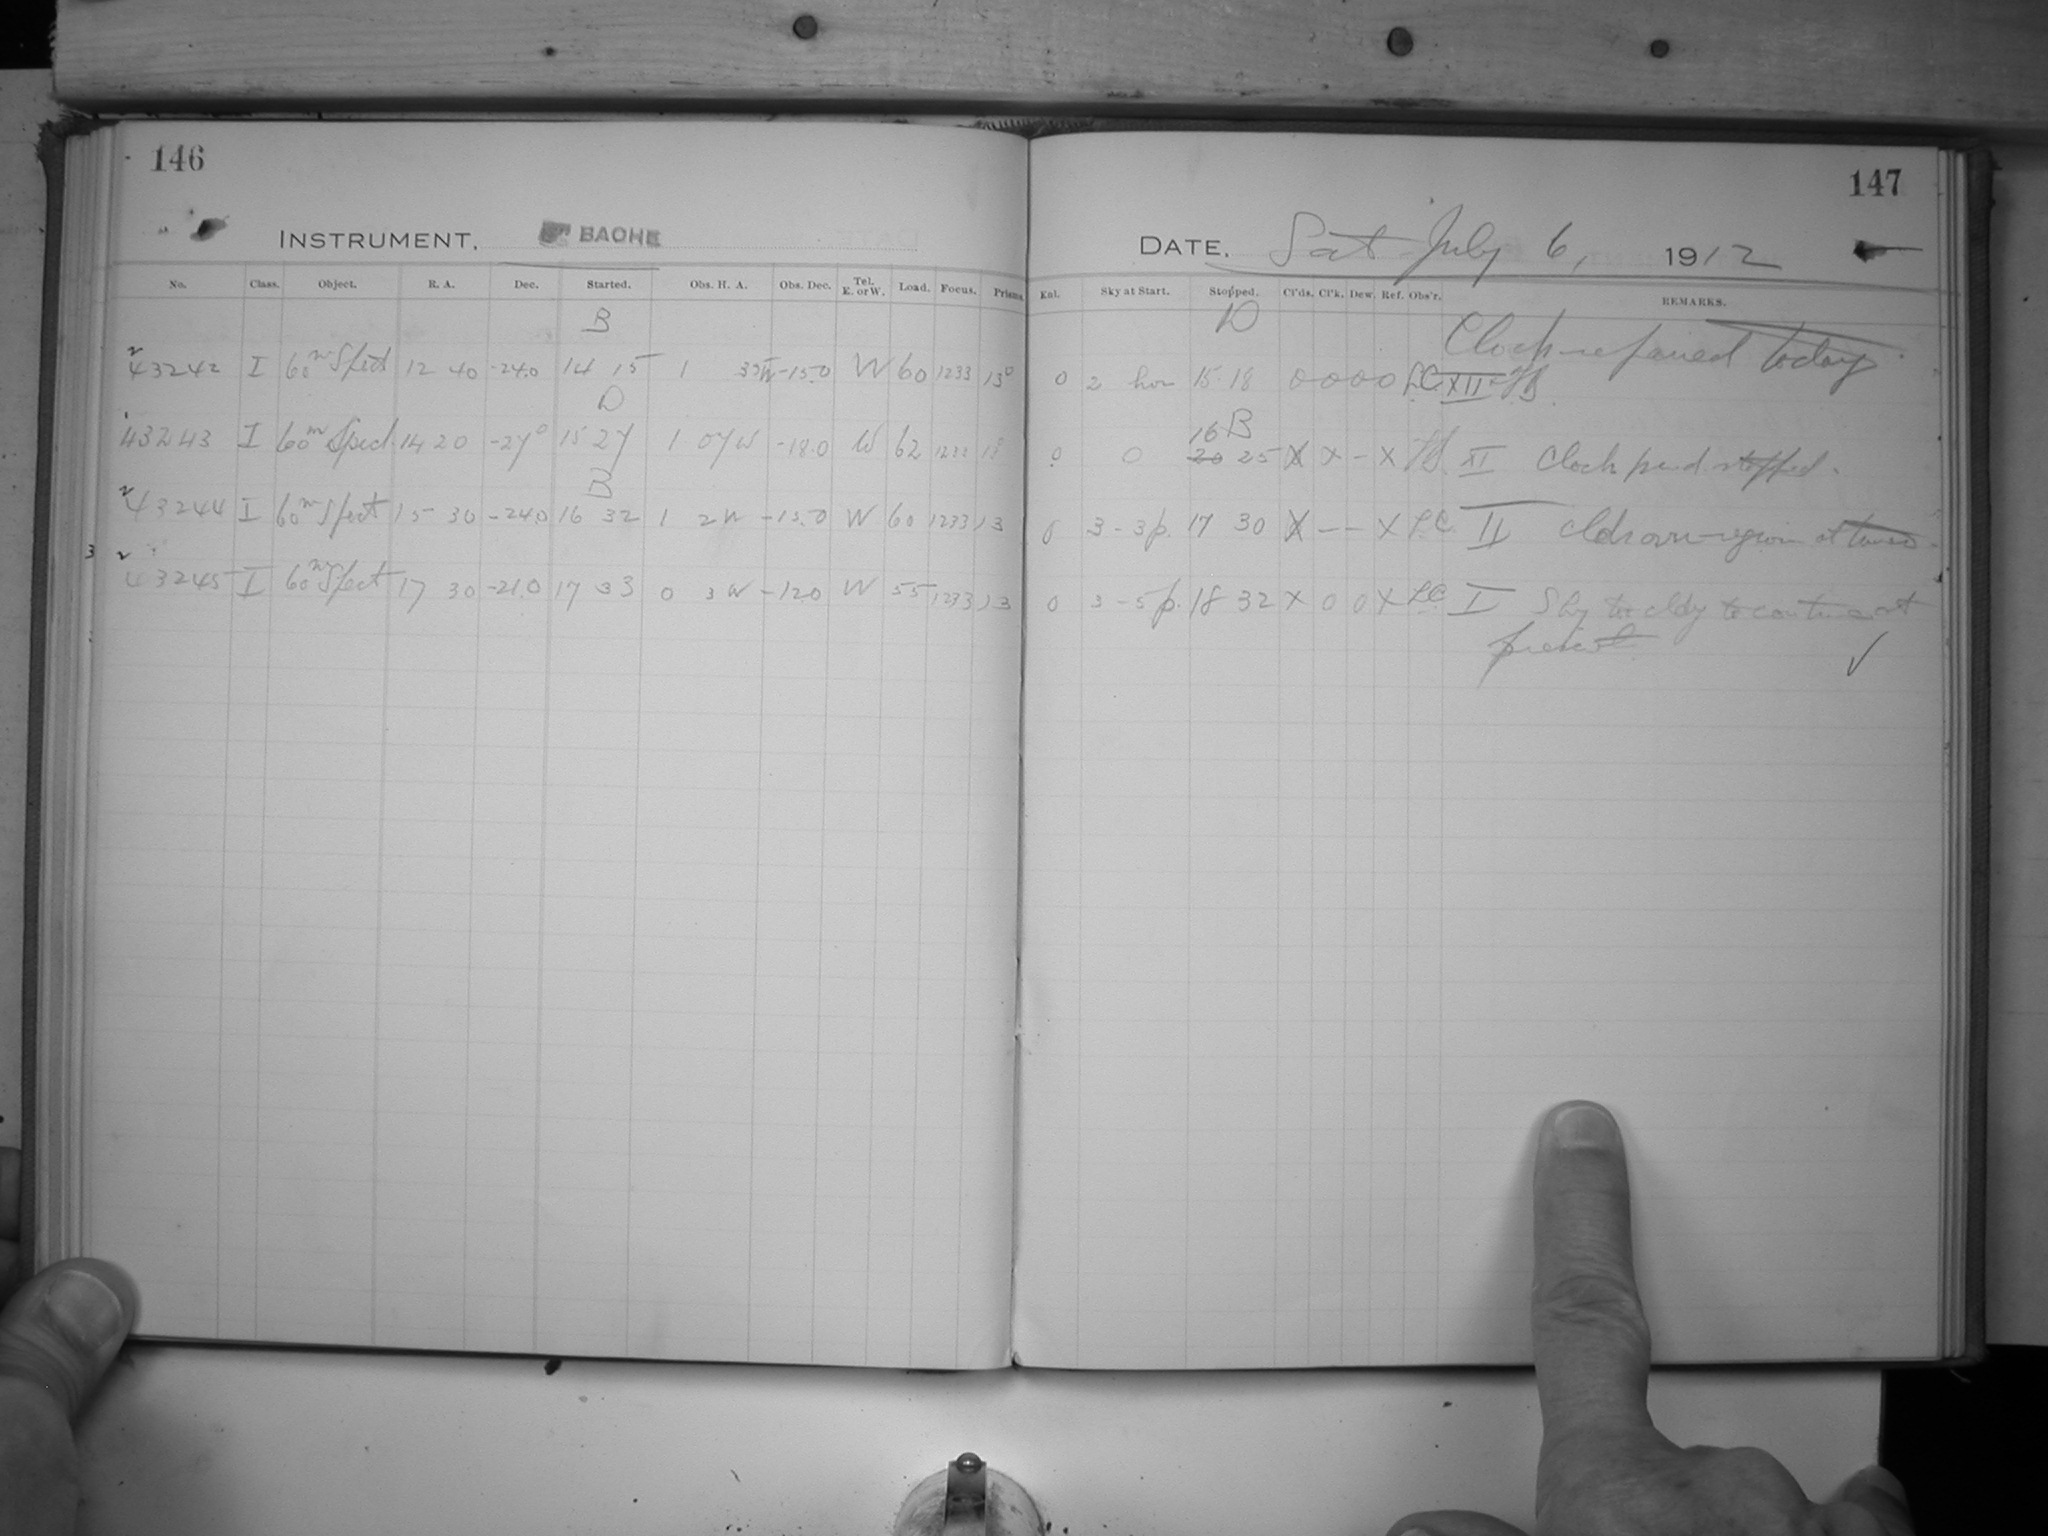 146
147
INSTRUMENT. BACHE
DATE. Sat July 6, 1912
No. Class. Object. R. A. Dec. Started. Obs. H. A. Obs. Dec. Tel. E. or W. Load. Focus. Prisms.
Exl. Sky at Start. Stopped. Cl'ds. Cl'k. Dew. Ref. Obs'r. REMARKS.
B
D
Clock repaired today
2
43242 I 60m Spect 12 40 -24.0 14 15 1 35W -15.0 W 60 1233 13°
0 2 hor 15 18 0 0 0 0 LC XII
D
16 B
1
43243 I 60m Spect. 14 20 -27° 15 27 1 07W -18.0 W 62
0 0 20 25 X X - X XI Clock pend stopped.
B
2
43244 I 60m Spect 15 30 -24.0 16 32 1 2W -15.0 W 60 1233 13
0 3 - 3p. 17 30 X - - X LC II Clds over region at times.
3 2
43245 I 60m Spect 17 30 -21.0 17 33 0 3W -12.0 W 55 1233 13
0 3 - 5p. 18 32 X 0 0 X LC I Sky too cldy to continue at
present ✓